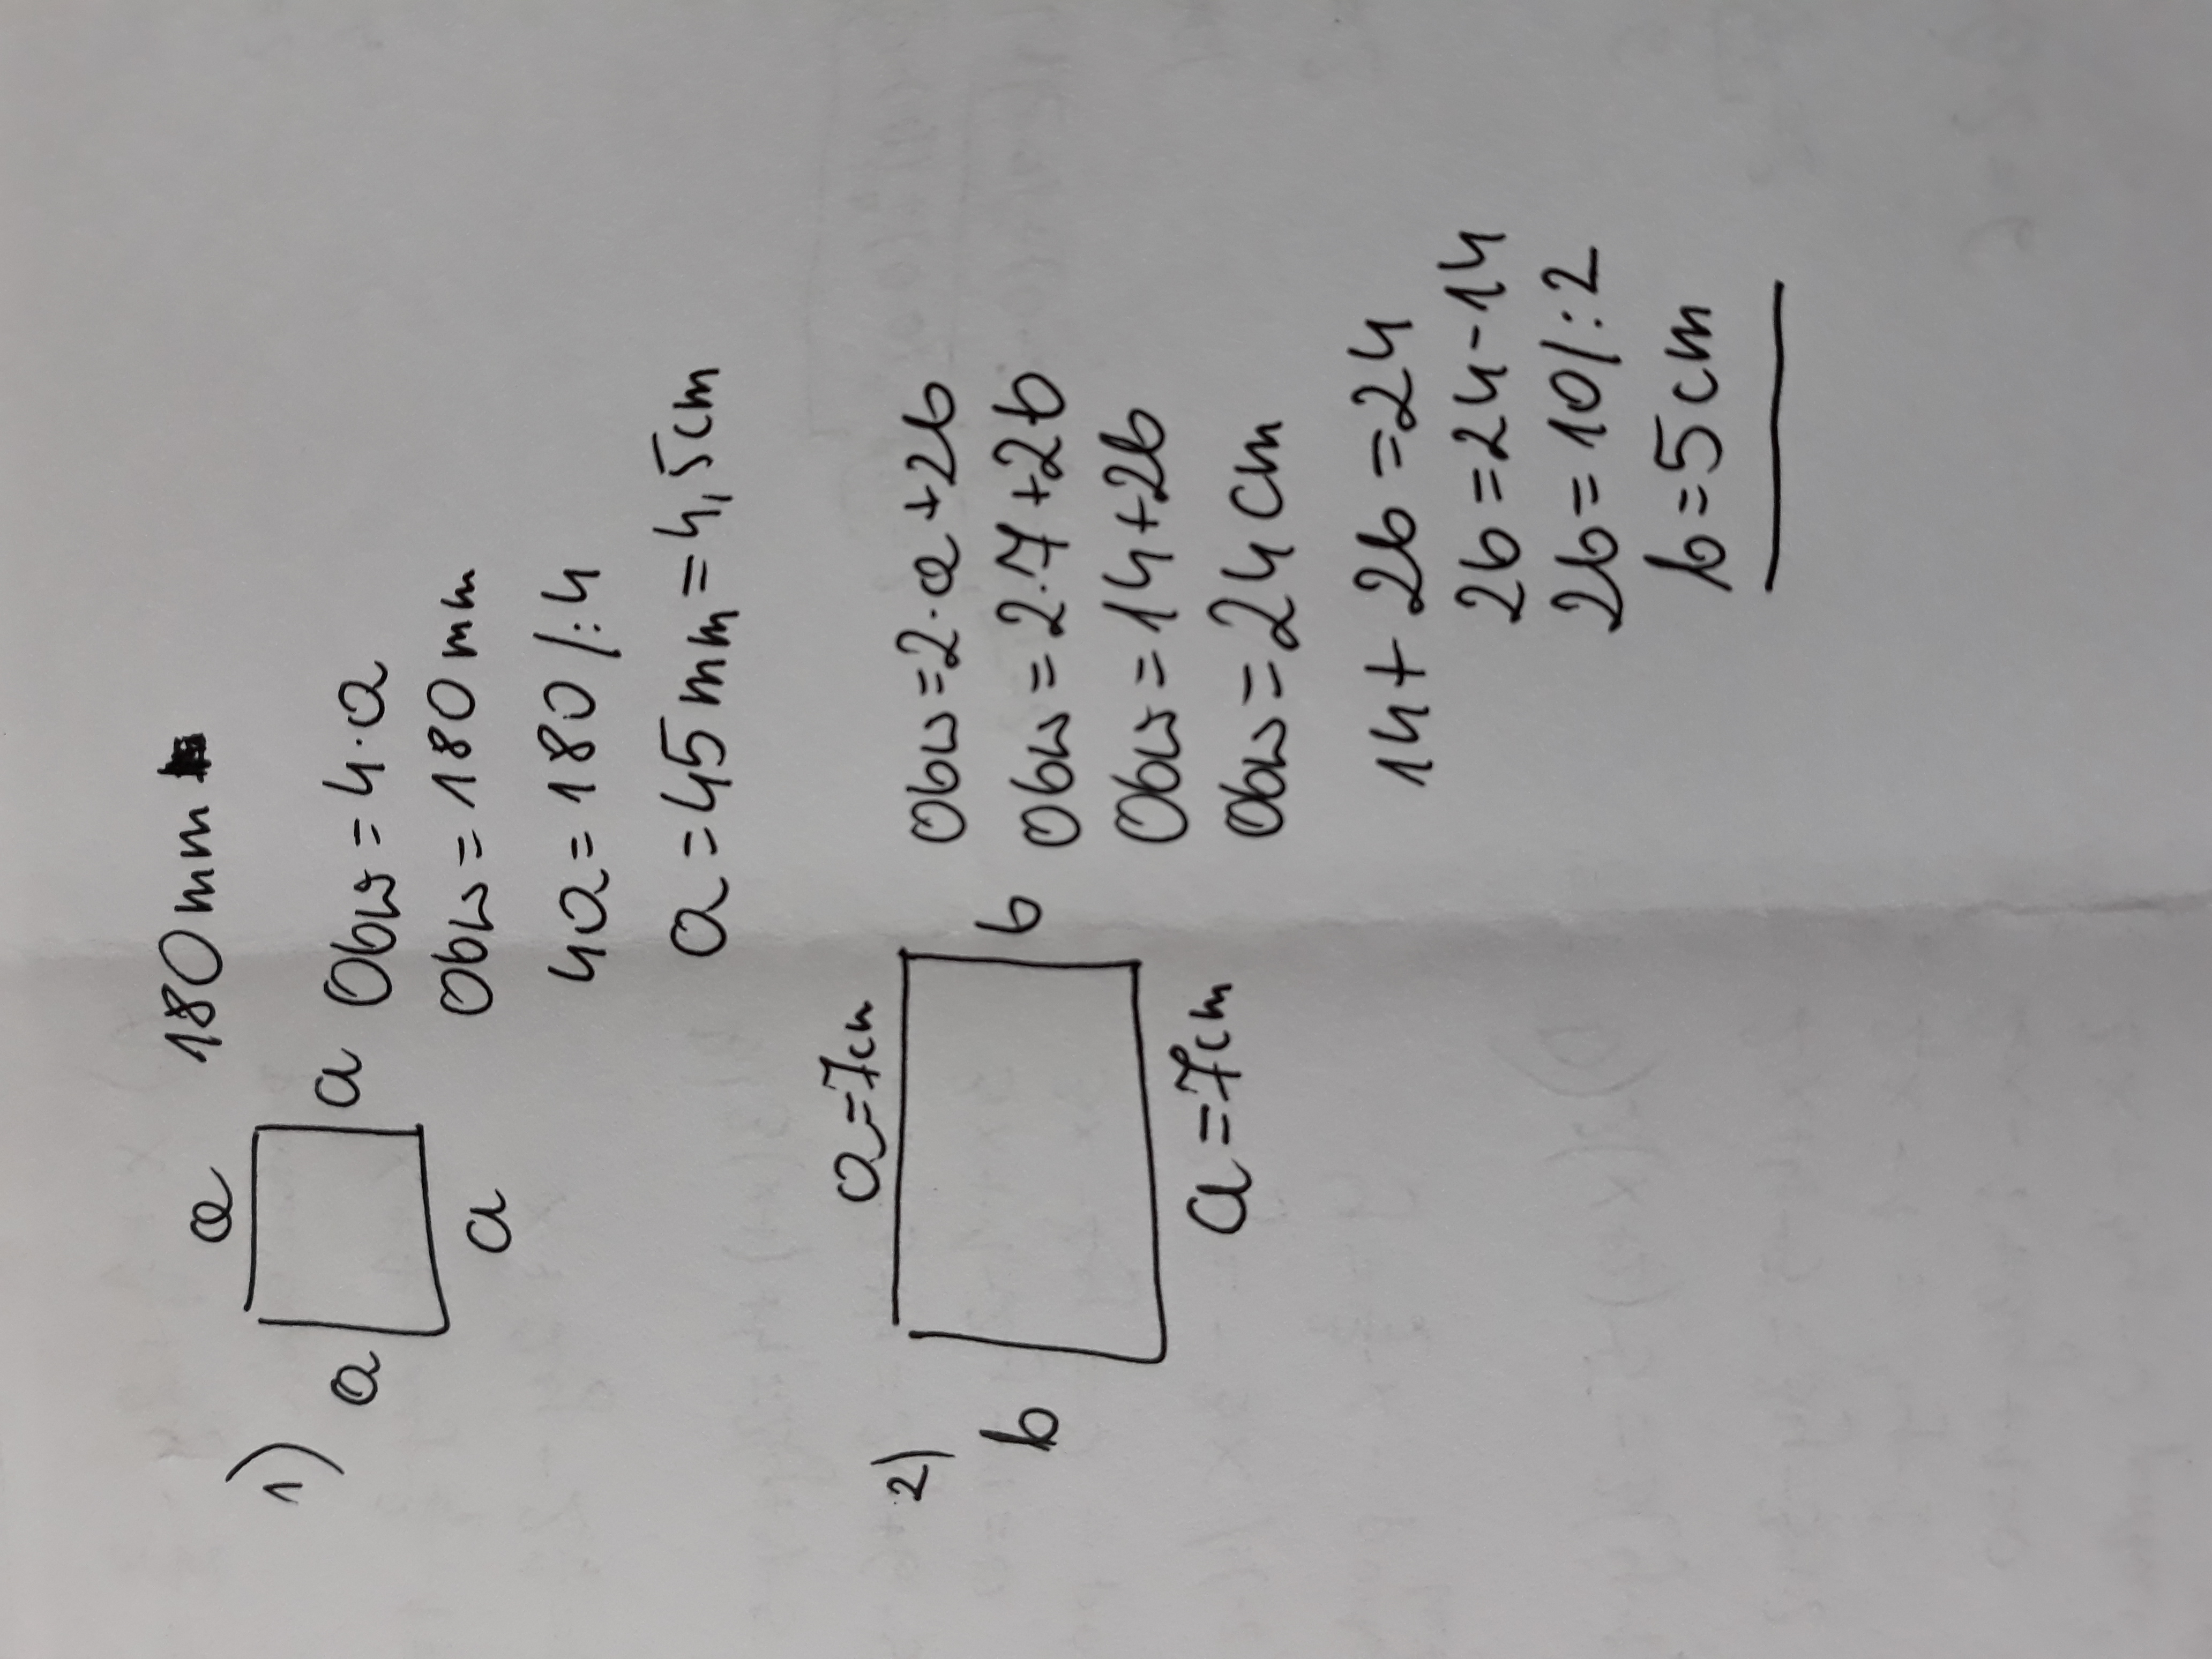 1)
180 mm
a
a
a
a
Obw = 4·a
Obw = 180 mm
4a = 180 /:4
a = 45 mm = 4,5 cm
2)
a = 7cm
b
b
a = 7cm
Obw = 2·a + 2b
Obw = 2·7 + 2b
Obw = 14 + 2b
Obw = 24 cm
14 + 2b = 24
2b = 24 - 14
2b = 10 /:2
b = 5 cm